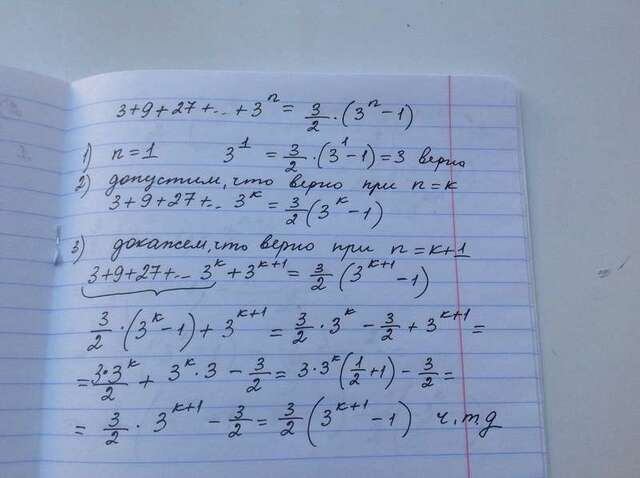 3+9+27+...+3ⁿ = 3/2 · (3ⁿ - 1)
1) n=1 3¹ = 3/2 · (3¹ - 1) = 3 верно
2) допустим, что верно при n=k
3+9+27+.. 3ᵏ = 3/2 (3ᵏ - 1)
3) докажем, что верно при n=k+1
3+9+27+... 3ᵏ + 3ᵏ⁺¹ = 3/2 (3ᵏ⁺¹ - 1)
3/2 · (3ᵏ - 1) + 3ᵏ⁺¹ = 3/2 · 3ᵏ - 3/2 + 3ᵏ⁺¹ =
= 3·3ᵏ/2 + 3ᵏ · 3 - 3/2 = 3·3ᵏ (1/2 + 1) - 3/2 =
= 3/2 · 3ᵏ⁺¹ - 3/2 = 3/2 (3ᵏ⁺¹ - 1) ч.т.д